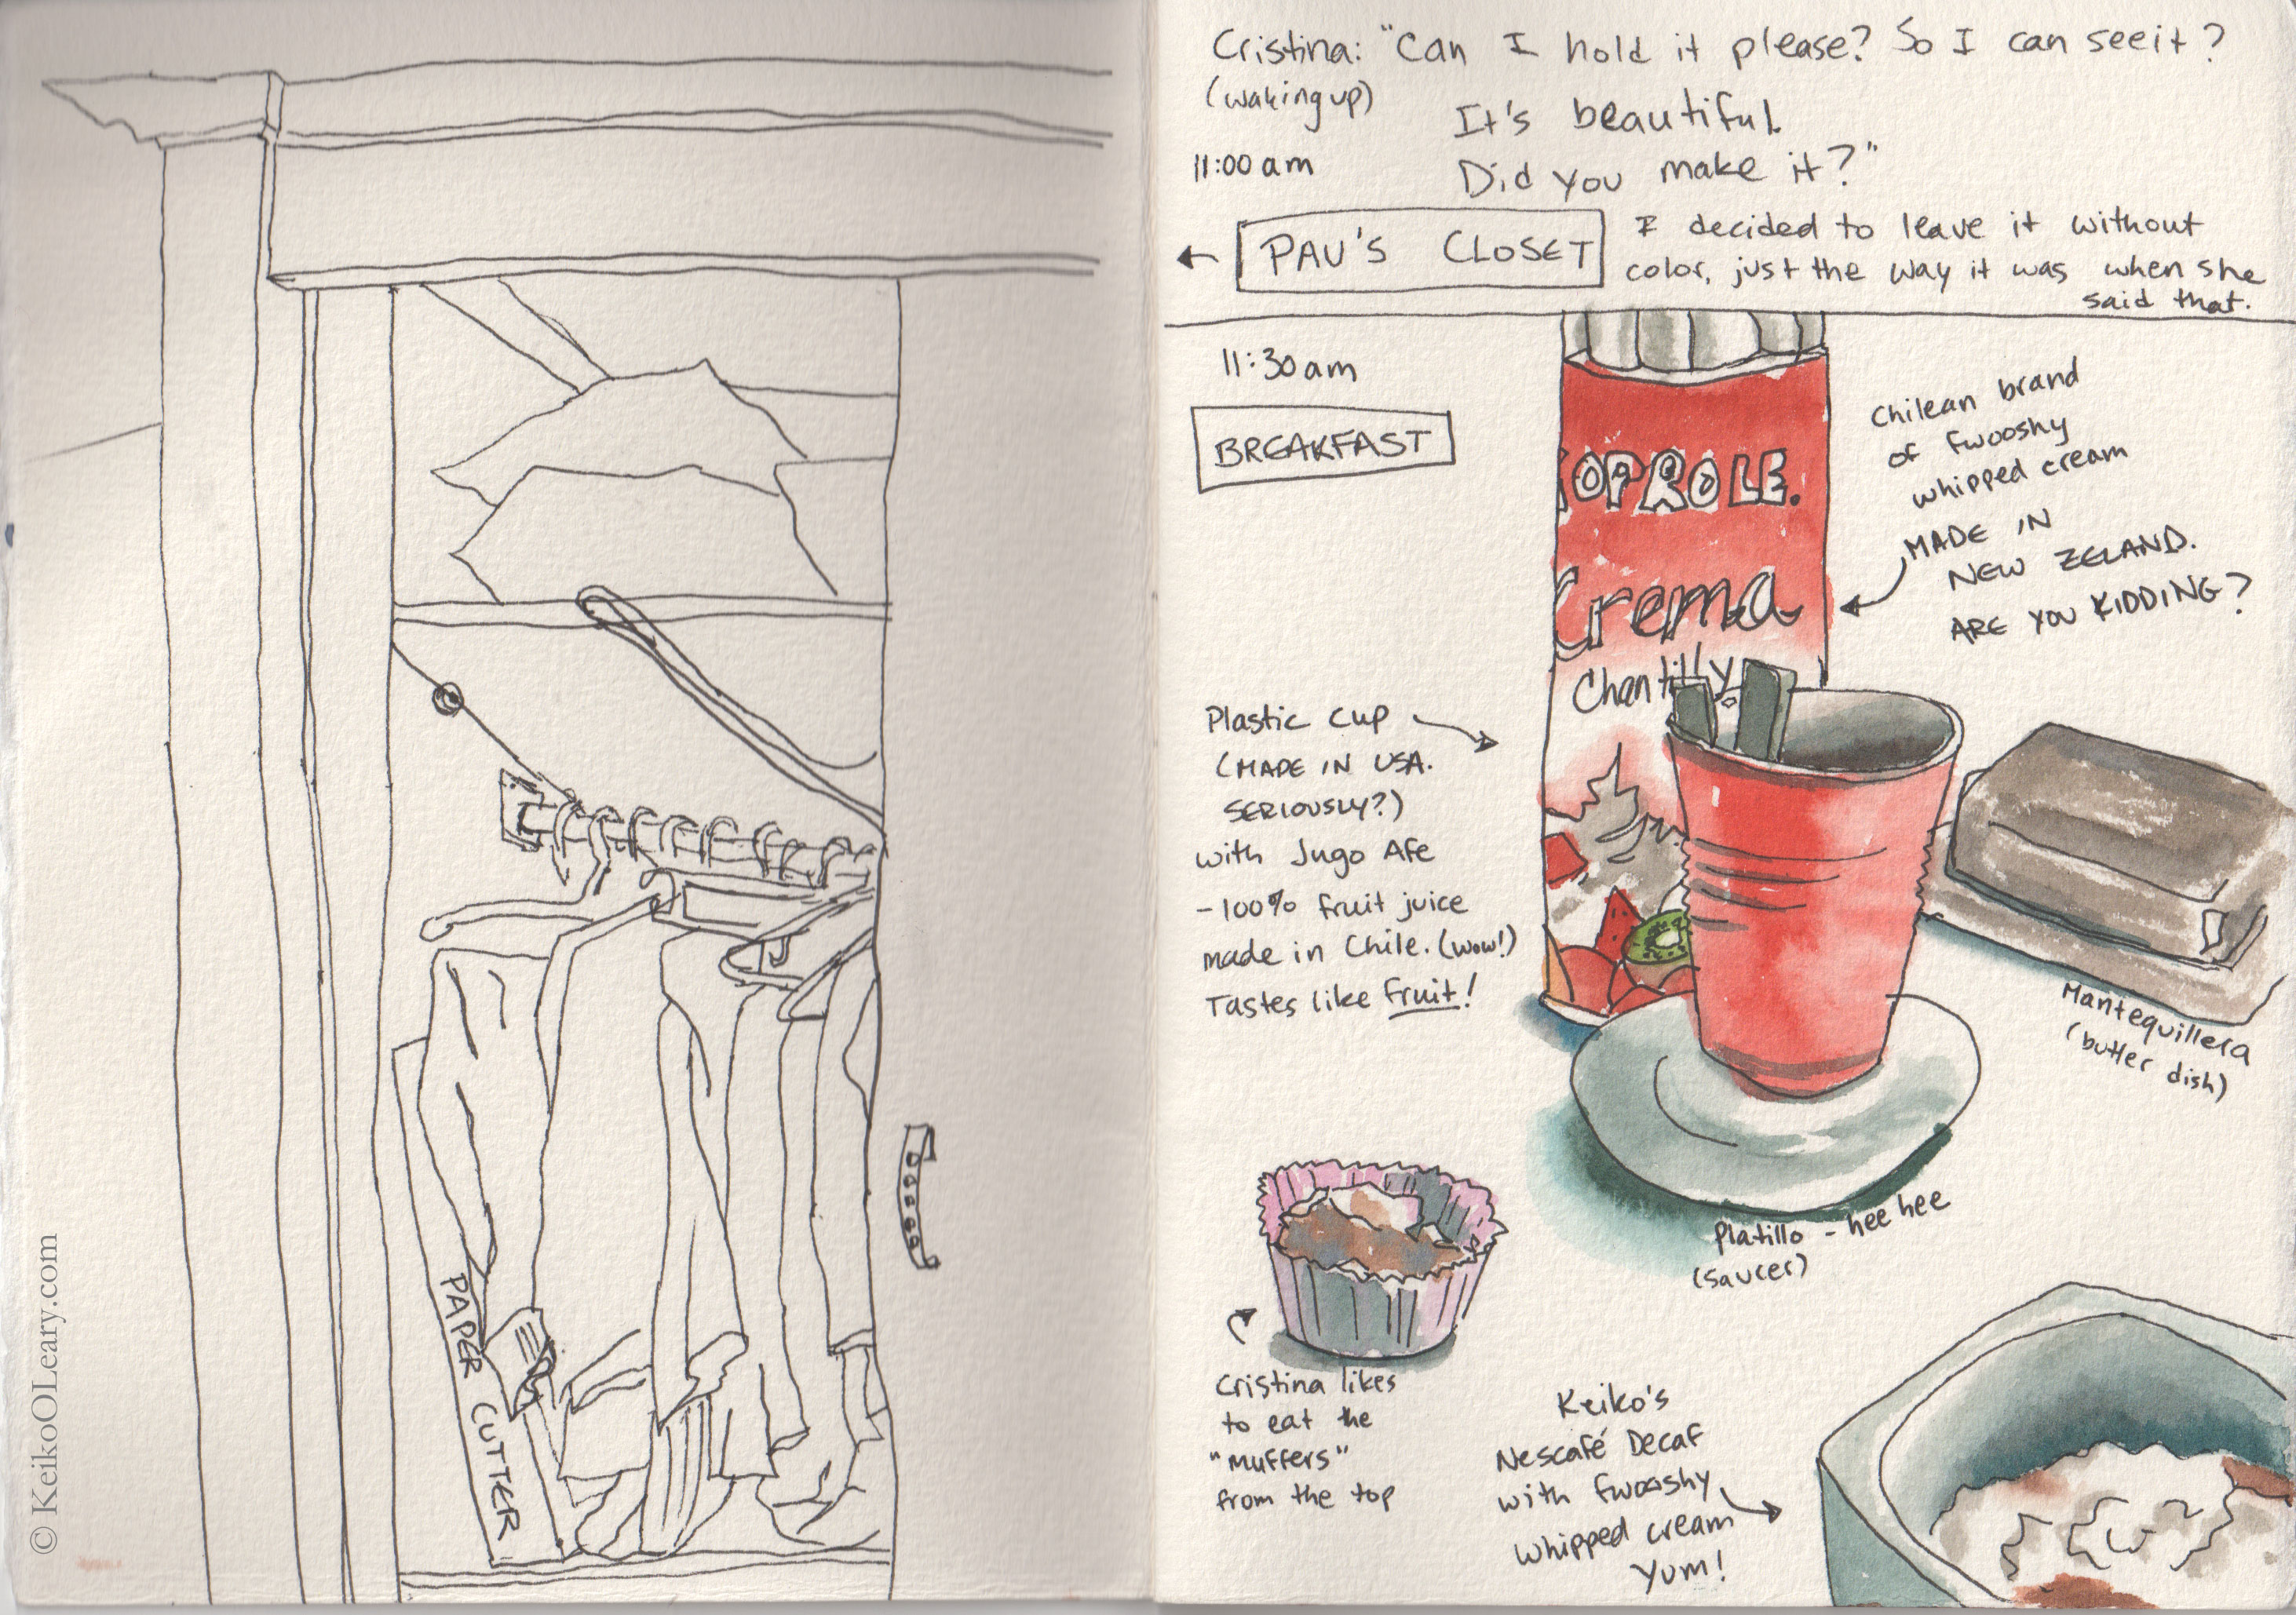 © KeikoOLeary.com
PAPER CUTTER
Cristina: "Can I hold it please? So I can see it?
(waking up)
It's beautiful.
11:00 am
Did you make it?"
PAU'S CLOSET
I decided to leave it without
color, just the way it was when she
said that.
11:30am
BREAKFAST
OPROLE.
Crema
Chantilly
Chilean brand
of fwooshy
whipped cream
MADE IN
NEW ZELAND.
ARE YOU KIDDING?
Plastic cup
(MADE IN USA.
SERIOUSLY?)
with Jugo Afe
- 100% fruit juice
made in Chile. (wow!)
Tastes like fruit!
Mantequillera
(butter dish)
Platillo - hee hee
(saucer)
Cristina likes
to eat the
"muffers"
from the top
Keiko's
Nescafé Decaf
with fwooshy
whipped cream
Yum!